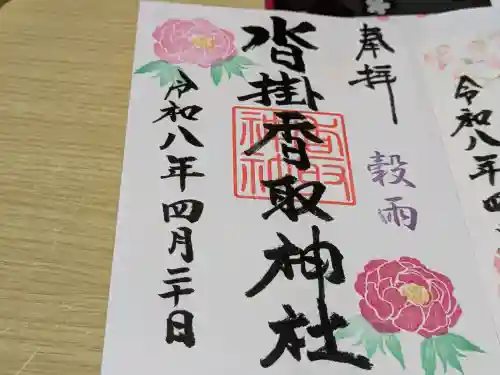 奉拝
穀雨
沓掛香取神社
令和八年四月二十日
令和八年四